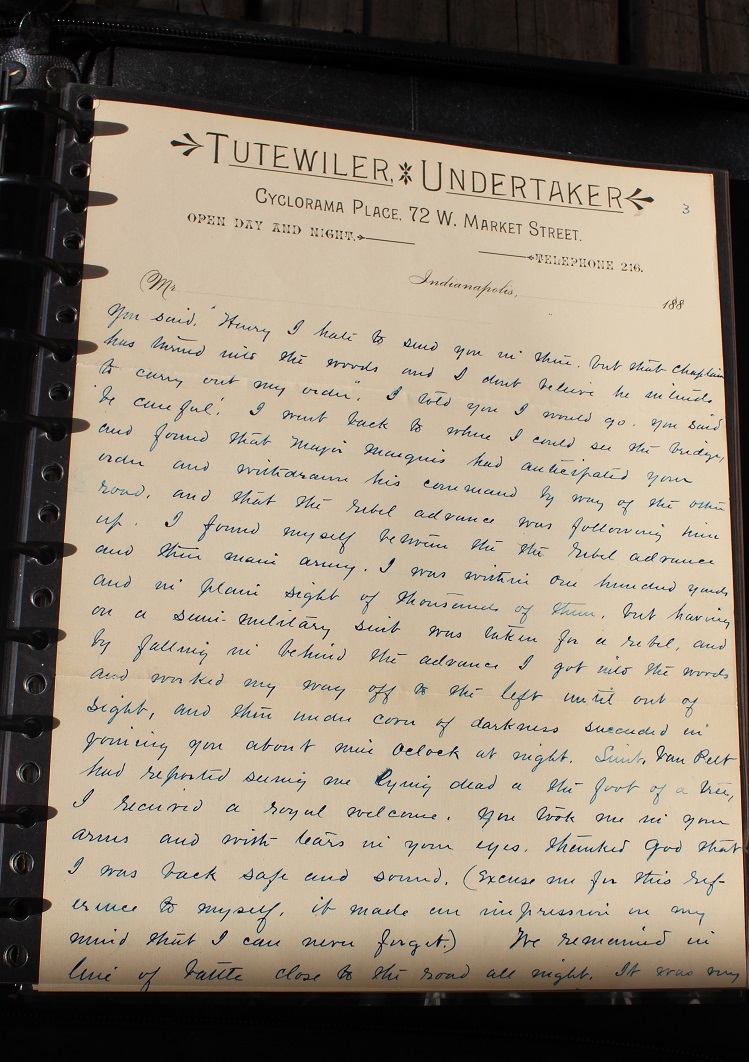 TUTEWILER, UNDERTAKER
3
CYCLORAMA PLACE, 72 W. MARKET STREET.
OPEN DAY AND NIGHT.
TELEPHONE 216.
Indianapolis, 188
Mr.
You said. "Henry I hate to send you in there. but that chaplain
has turned into the woods and I dont believe he intends
to carry out my order". I told you I would go. You said
'be careful'. I went back to where I could see the bridge,
and found that Major Marquis had anticipated your
order and withdrawn his command by way of the other
road. and that the rebel advance was following him
up. I found myself between the the rebel advance
and their main army. I was within one hundred yards
and in plain sight of thousands of them. but having
on a semi-military suit was taken for a rebel, and
by falling in behind the advance I got into the woods
and worked my way off to the left until out of
sight, and then under cover of darkness succeeded in
joining you about nine oclock at night. Lieut. Van Pelt
had reported seeing me lying dead a the foot of a tree,
I received a royal welcome. You took me in your
arms and with tears in your eyes. thanked God that
I was back safe and sound. (Excuse me for this ref-
erence to myself. it made an impression on my
mind that I can never forget.) We remained in
line of battle close to the road all night. It was my